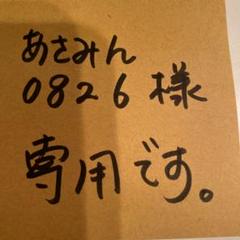 あさみん
0826様
専用です。